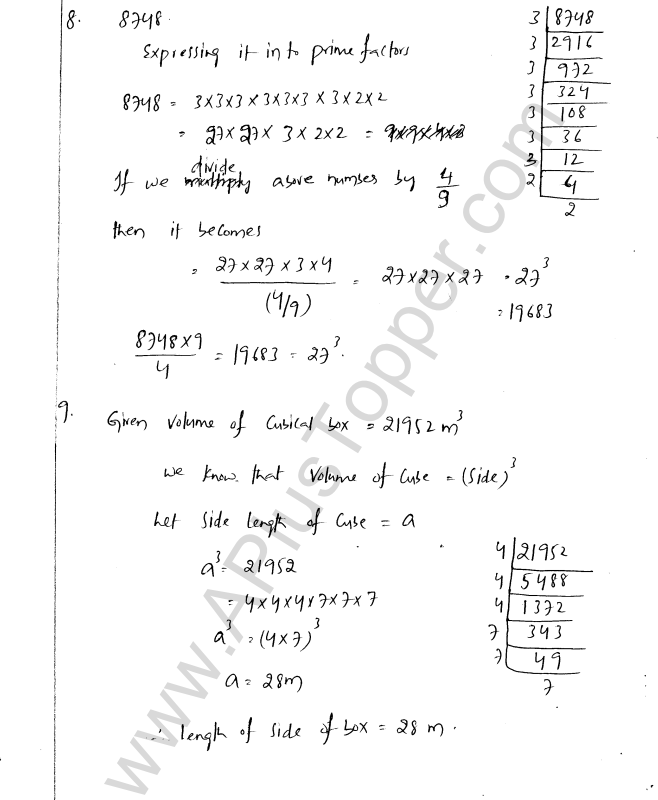 8. 8748.
Expressing it in to prime factors
8748 = 3×3×3×3×3×3×3×2×2
= 27×27×3×2×2 =
divide
If we above number by 4/9
then it becomes
= 27×27×3×4/(4/9) = 27×27×27 = 27³
= 19683
8748×9/4 = 19683 = 27³.
3 | 8748
3 | 2916
3 | 972
3 | 324
3 | 108
3 | 36
3 | 12
2 | 4
2
9. Given Volume of Cubical box = 21952 m³
we know that Volume of Cube = (Side)³
Let Side length of Cube = a
a³ = 21952
= 4×4×4×7×7×7
a³ = (4×7)³
a = 28m
∴ length of side of box = 28 m.
4 | 21952
4 | 5488
4 | 1372
7 | 343
7 | 49
7
www.APlusTopper.com